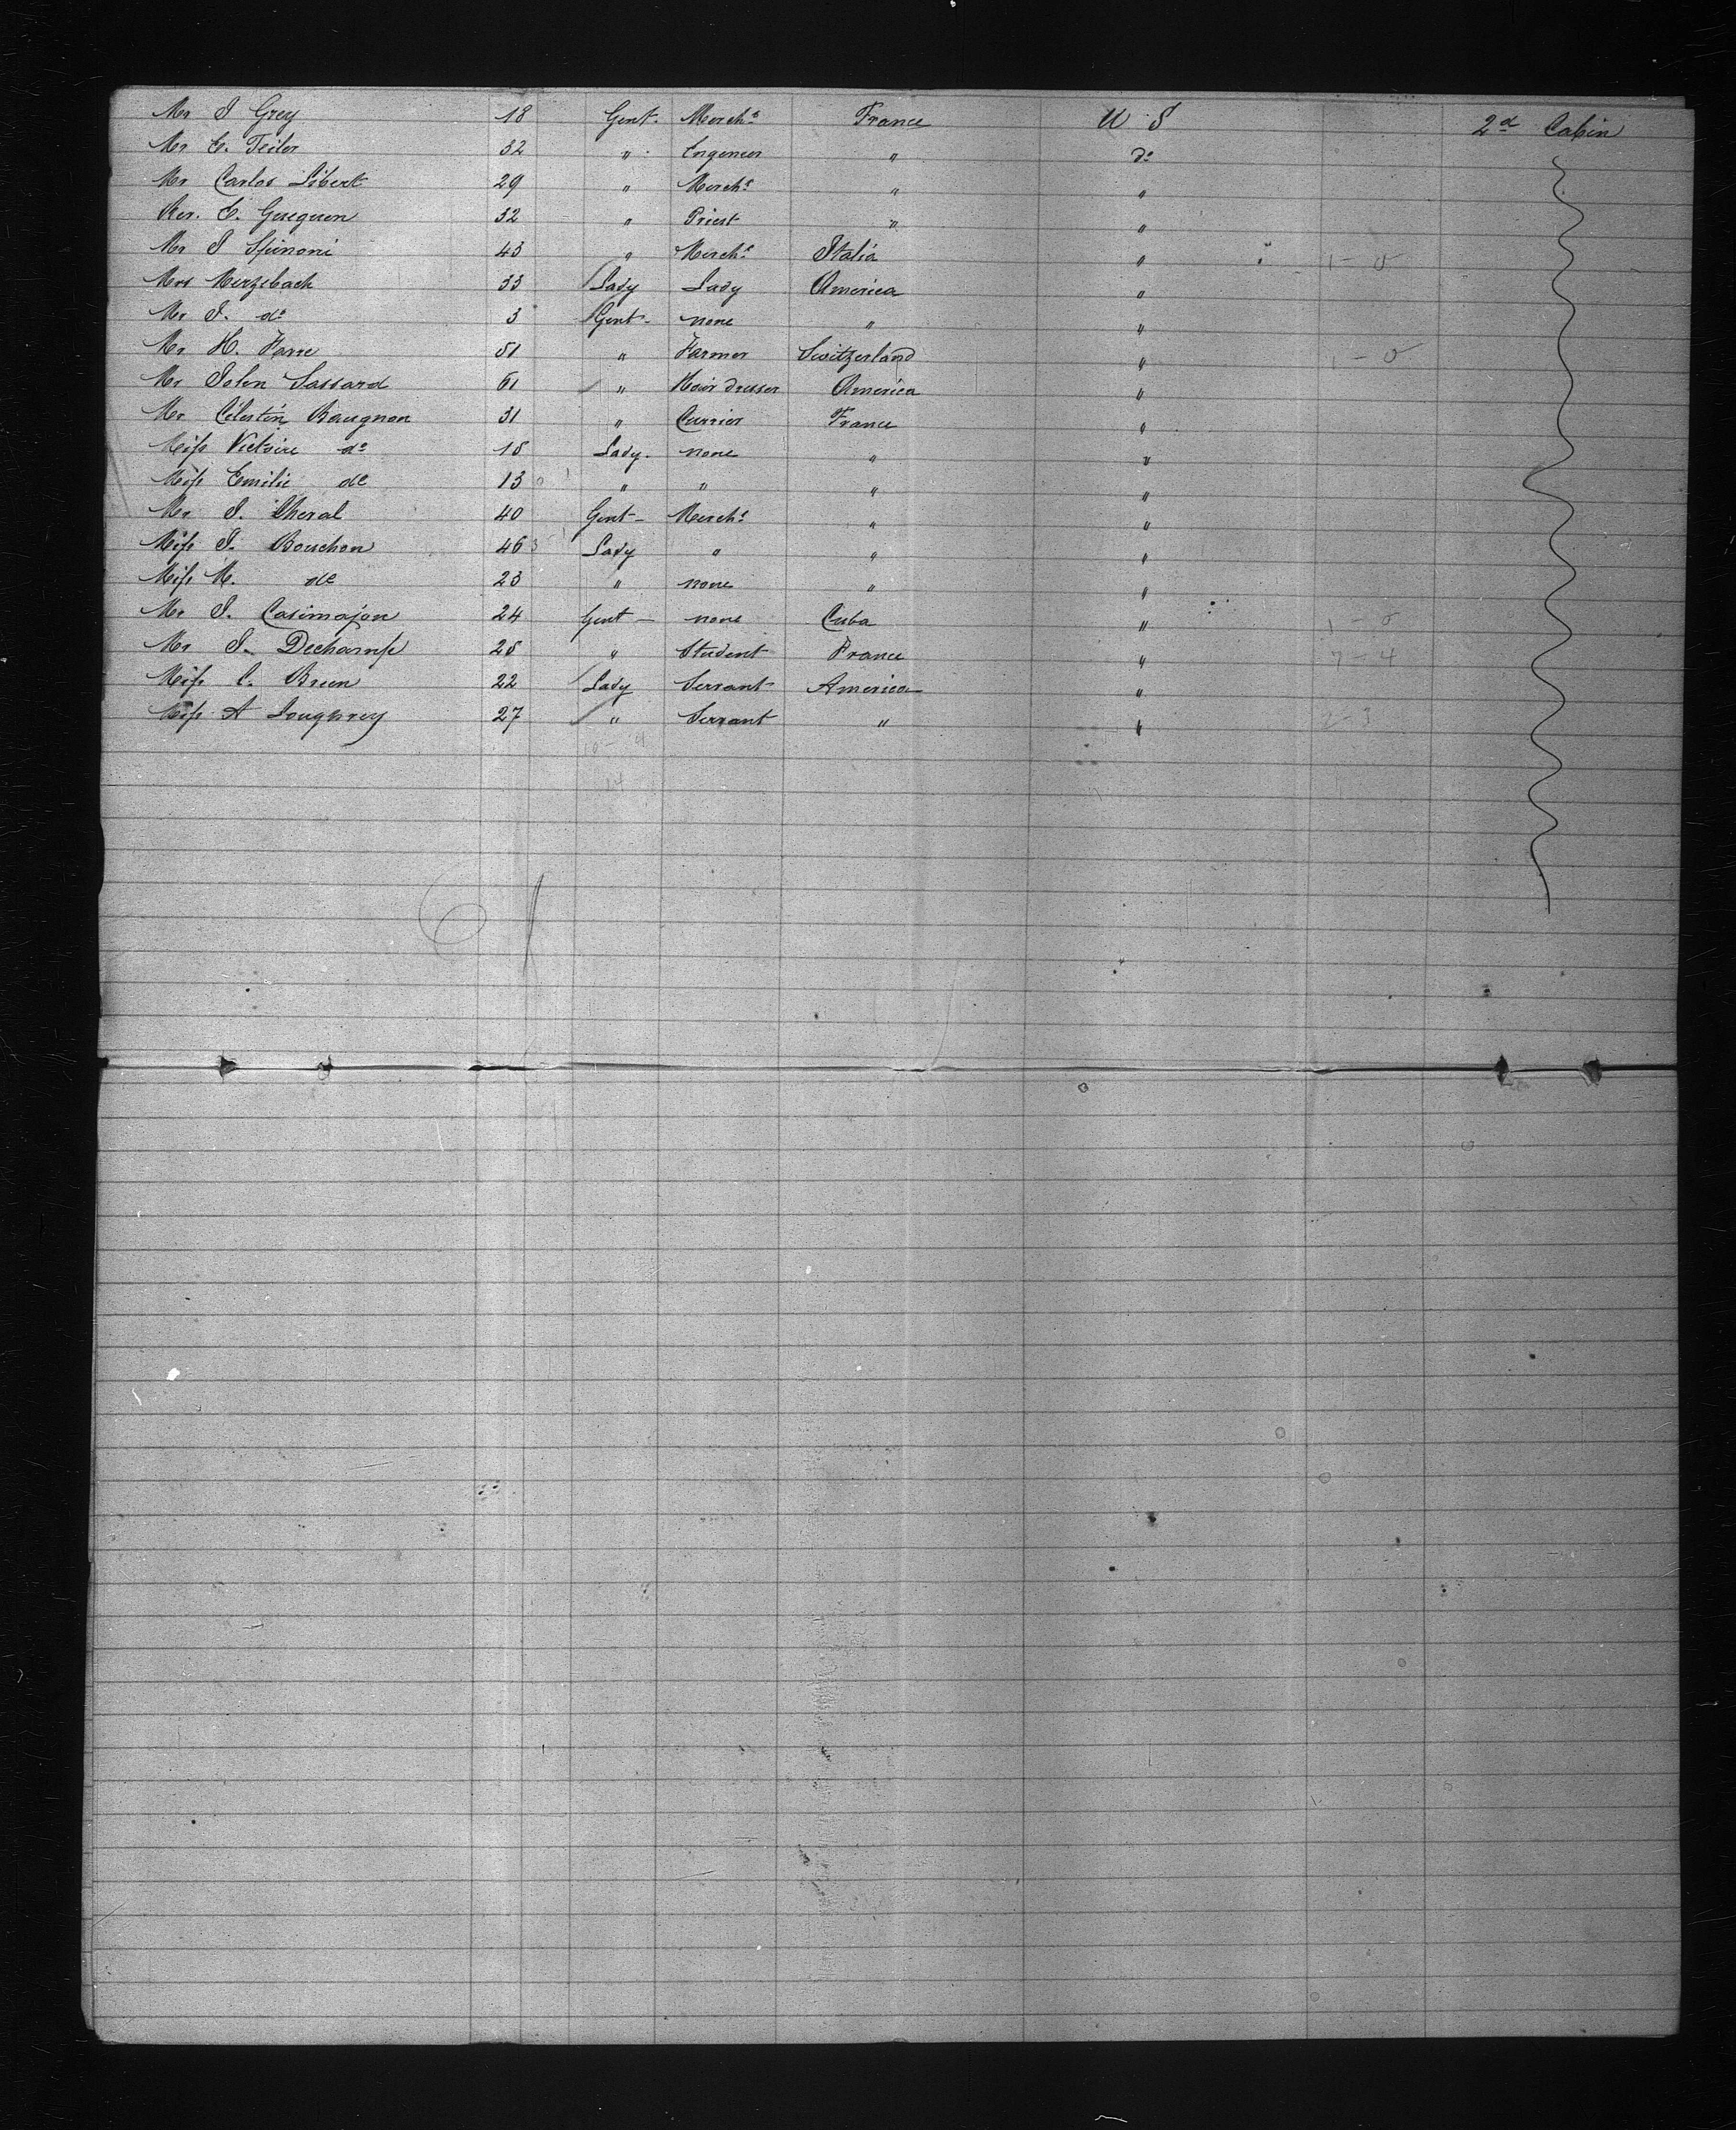 Mr J Grey 18 Gent. Merch^t France U S 2^d Cabin
Mr E. Teiler 32 " Engeneer " d^o
Mr Carlos Libert 29 " Merch^t " "
Rev. E. Gueguen 32 " Priest " "
Mr J Spinoni 43 " Merch^t Italia " 1-0
Mrs Merzebach 33 Lady Lady America "
Mr J. d^o 3 Gent - none " "
Mr H. Farre 51 " Farmer Switzerland " 1-0
Mr John Lassard 61 " Hair dresser America "
Mr Célestin Baugnon 31 " Currier France "
Miss Victoire d^o 18 Lady. none " "
Miss Emilie d^o 13 " " " "
Mr J. Cheral 40 Gent - Merch^t " "
Miss J. Bouchon 46 Lady " " "
Miss M. d^o 23 " none " "
Mr J. Casimajou 24 Gent - none Cuba " 1-0
Mr J. Dechamps 25 " Student France " 7-4
Miss C. Breen 22 Lady Servant America "
Miss A Loughrey 27 " Servant " " 2-3
10-4
14